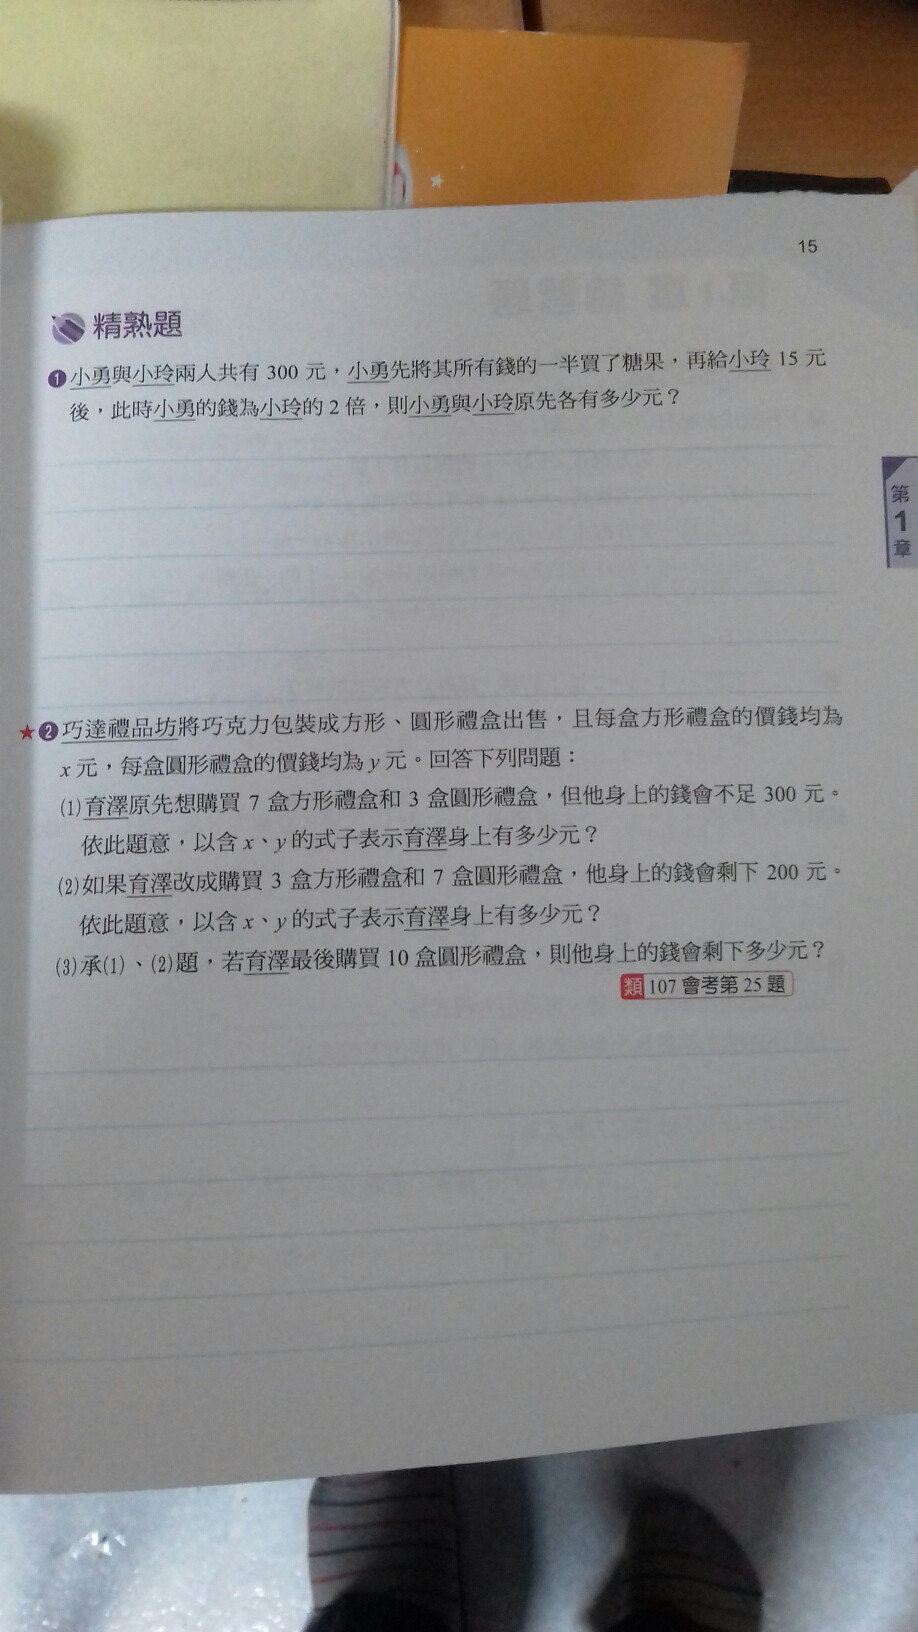 15
精熟題
1 小勇與小玲兩人共有 300 元，小勇先將其所有錢的一半買了糖果，再給小玲 15 元
後，此時小勇的錢為小玲的 2 倍，則小勇與小玲原先各有多少元？
第
1
章
★2 巧達禮品坊將巧克力包裝成方形、圓形禮盒出售，且每盒方形禮盒的價錢均為
x 元，每盒圓形禮盒的價錢均為 y 元。回答下列問題：
(1)育澤原先想購買 7 盒方形禮盒和 3 盒圓形禮盒，但他身上的錢會不足 300 元。
依此題意，以含 x、y 的式子表示育澤身上有多少元？
(2)如果育澤改成購買 3 盒方形禮盒和 7 盒圓形禮盒，他身上的錢會剩下 200 元。
依此題意，以含 x、y 的式子表示育澤身上有多少元？
(3)承(1)、(2)題，若育澤最後購買 10 盒圓形禮盒，則他身上的錢會剩下多少元？
類 107 會考第 25 題